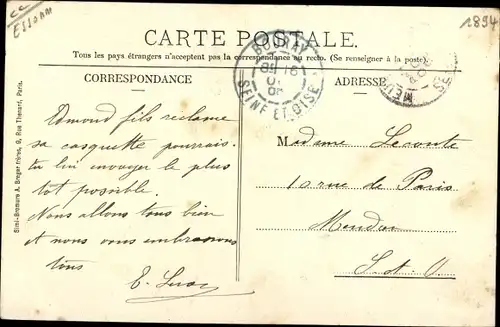 Essonne
1894
CARTE POSTALE.
Tous les pays étrangers n'acceptent pas la correspondance au recto. (Se renseigner à la poste).
CORRESPONDANCE
ADRESSE
BOURAY
SEINE ET OISE
Simi-Bromure A. Breger frères, 9, Rue Thénard, Paris.
Edmond fils réclame
sa casquette pourrais
tu lui envoyer le plus
tôt possible.
Nous allons tous bien
et nous vous embrassons
tous
E.
Madame Lecomte
10 rue de Paris
Meudon
S. et O.